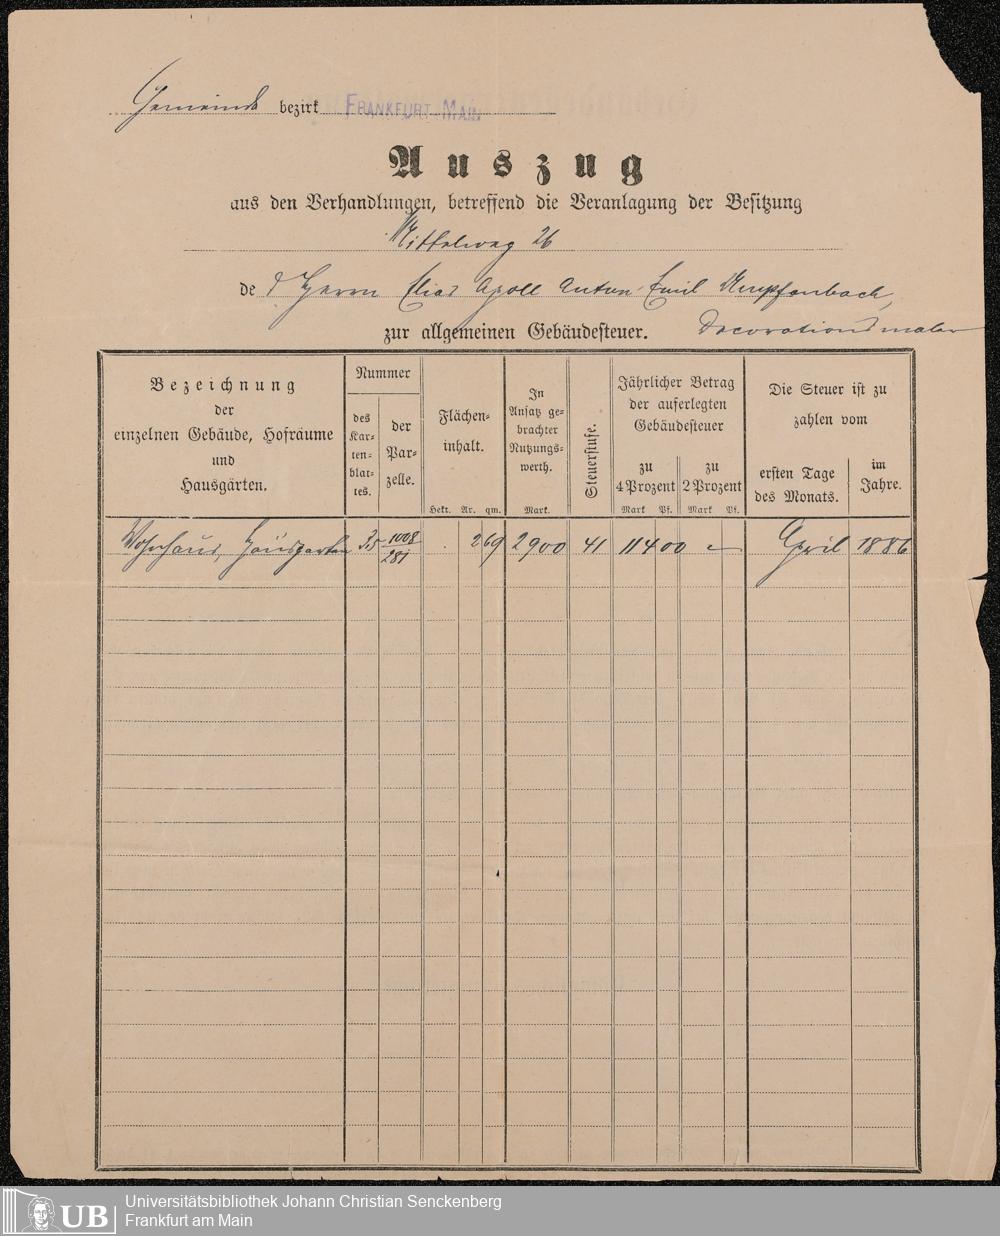 Gemeinde bezirk FRANKFURT-MAIN
Auszug
aus den Verhandlungen, betreffend die Veranlagung der Besitzung
Mittelweg 26
de s Herrn Elias Apoll Anton Emil
zur allgemeinen Gebäudesteuer. Decorationsmaler
Bezeichnung
der
einzelnen Gebäude, Hofräume
und
Hausgärten.
Nummer
des
Kar-
ten-
blat-
tes.
der
Par-
zelle.
Flächen-
inhalt.
Hekt. Ar. qm.
In
Ansatz ge-
brachter
Nutzungs-
werth.
Mark.
Steuerstufe.
Jährlicher Betrag
der auferlegten
Gebäudesteuer
zu
4 Prozent
Mark Pf.
zu
2 Prozent
Mark Pf.
Die Steuer ist zu
zahlen vom
ersten Tage
des Monats.
im
Jahre.
Wohnhaus, Hausgarten 35 1008/281 . 2 69 2900 41 114 00 – April 1886
UB
Universitätsbibliothek Johann Christian Senckenberg
Frankfurt am Main